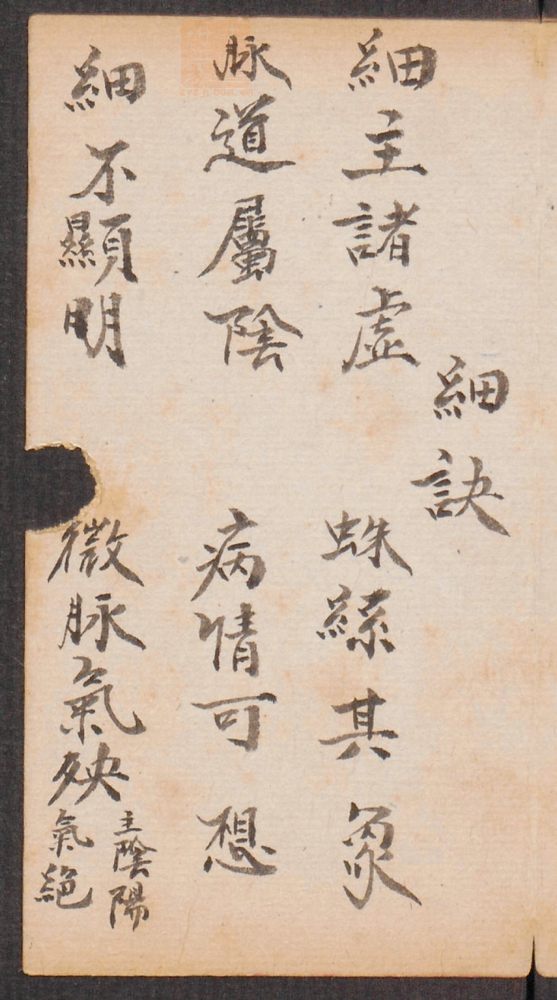 細訣
細主諸虛　蛛絲其象
脉道屬陰　病情可想
細不顯明　微脉氣殃 主陰陽
氣絕